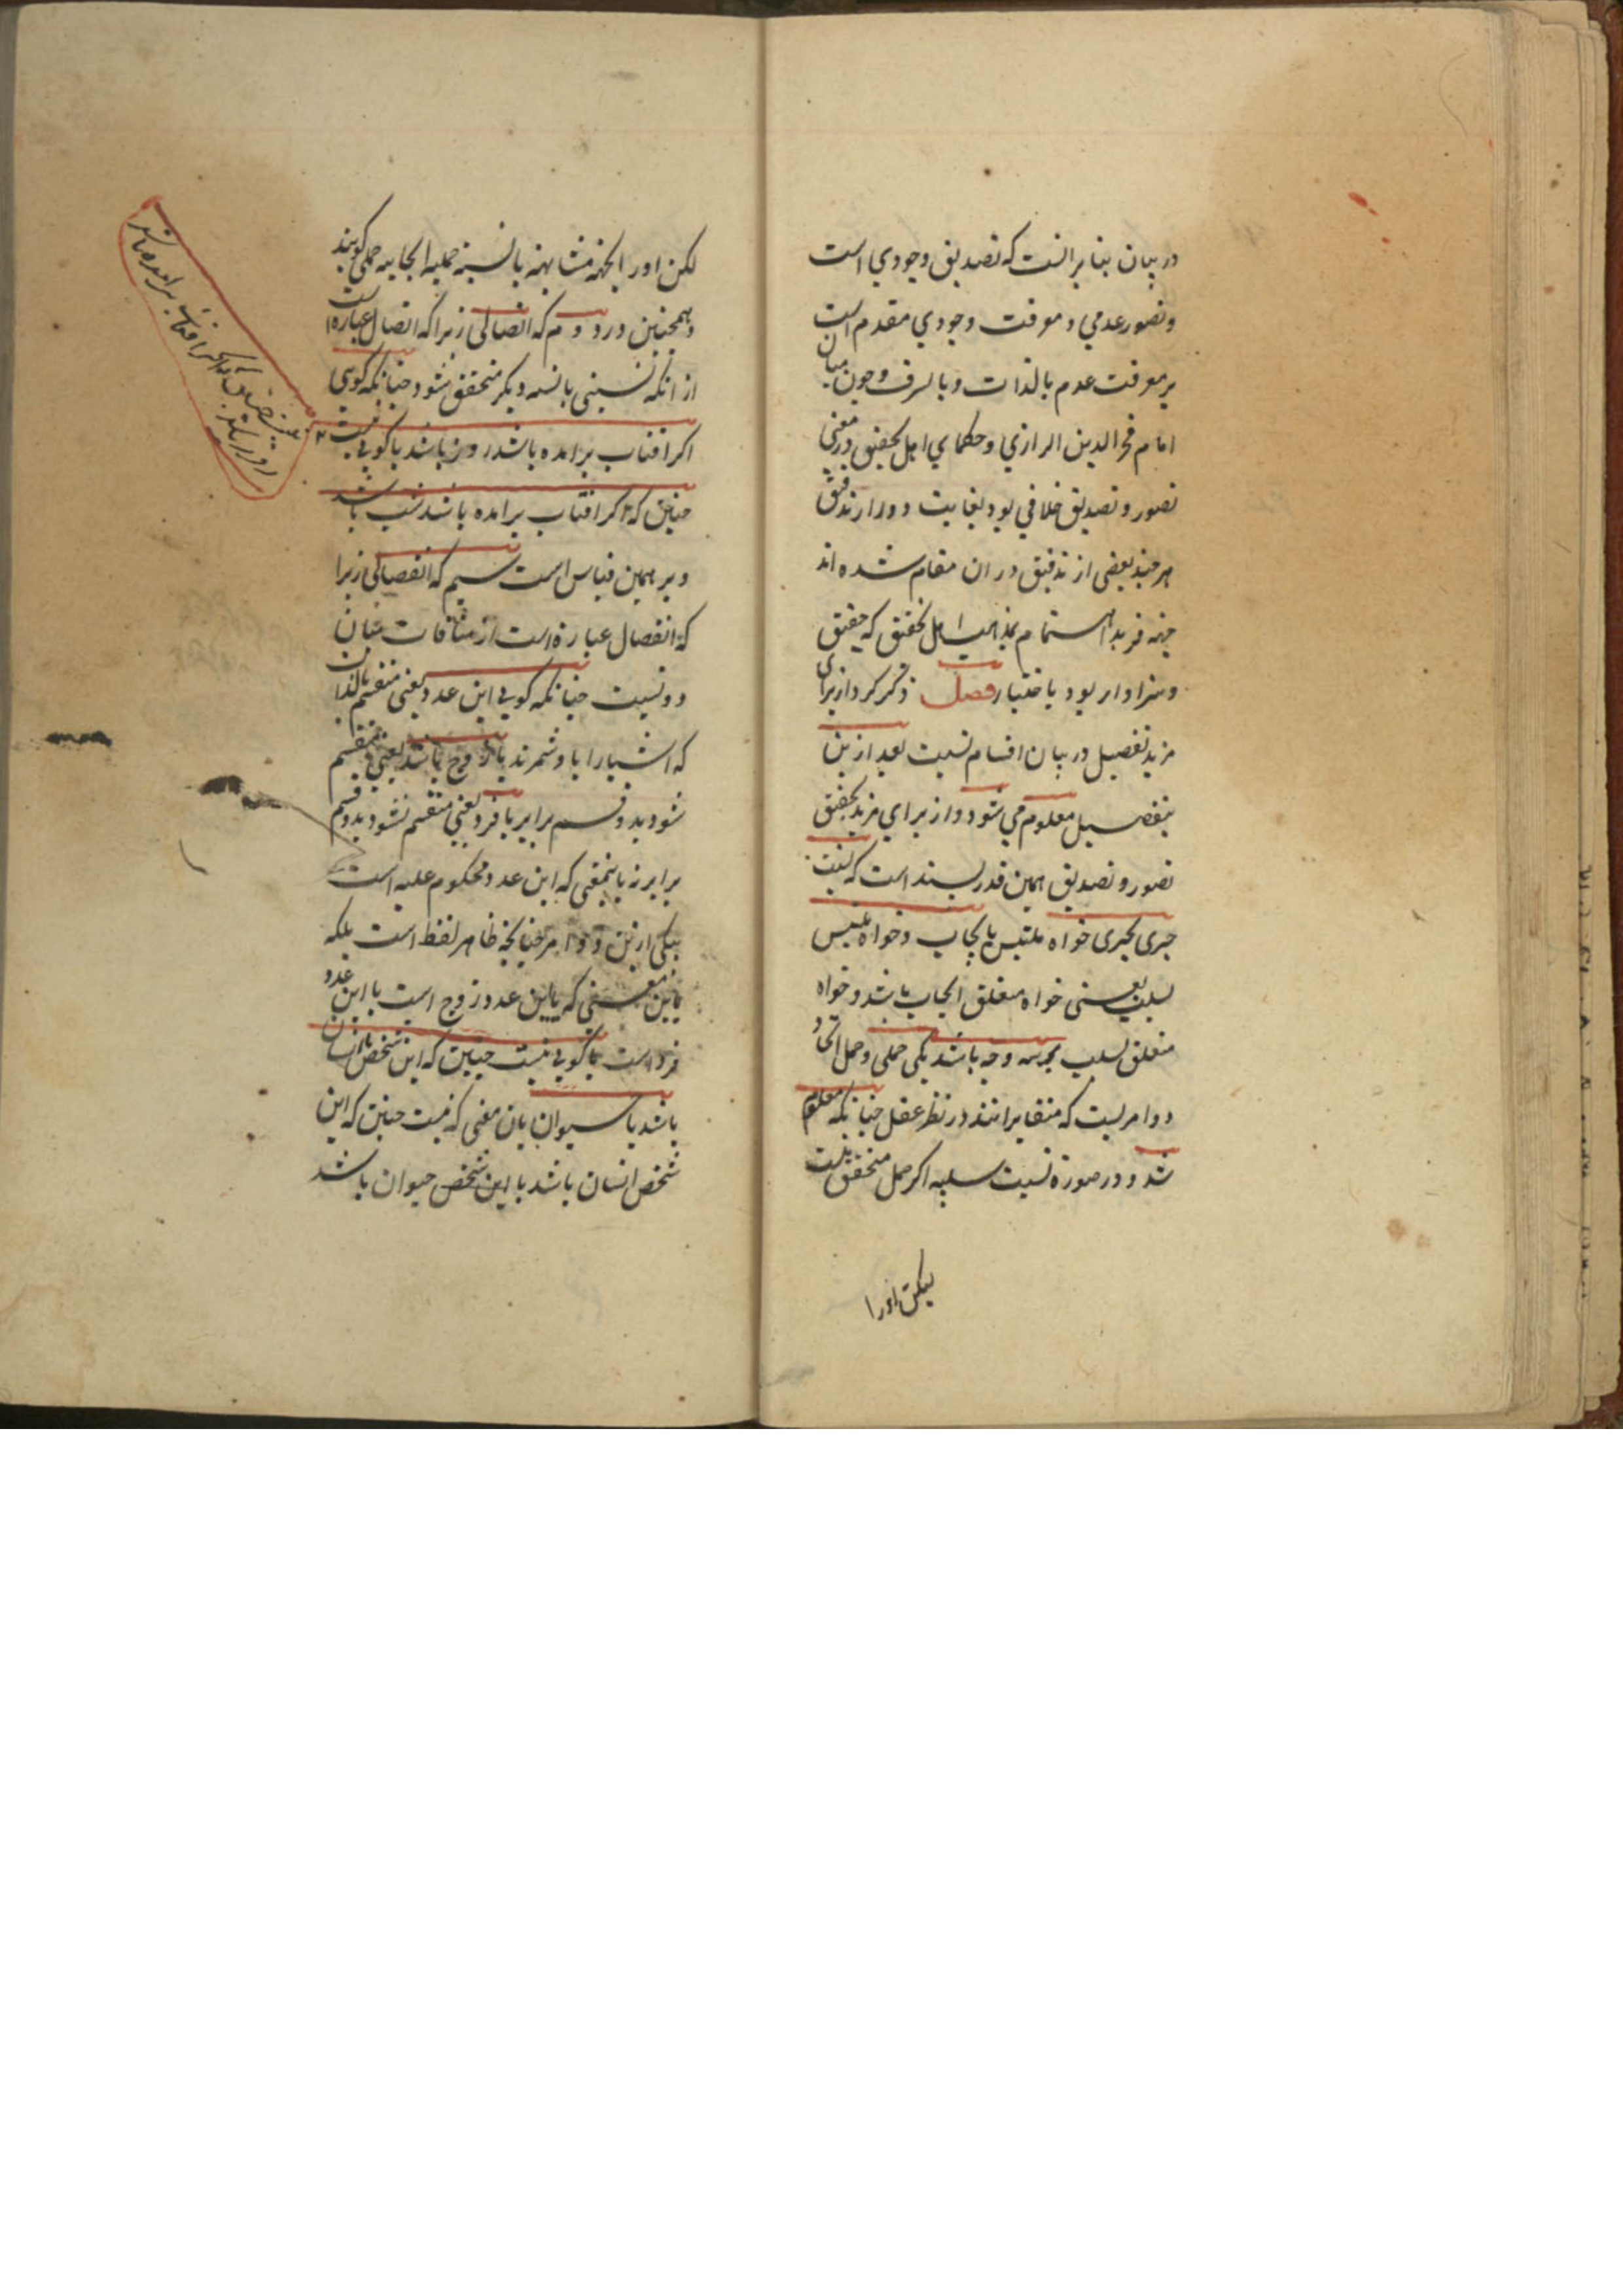 در بیان بنا برانست که تصدیق وجودی است
و تصور عدمی و معرفت وجودی مقدم است
بر معرفت عدم بالذات و بالشرف و چون میان
امام فخر الدین الرازی و حکمای اهل تحقیق در معنی
تصور و تصدیق خلافی بود بغایت دور از تدقیق
هر چند بعضی از تدقیق در ان مقام شده اند
جهة فرید اهتمام بمذهب اهل تحقیق که حقیق
و سزاوار بود باختیار فصل ذکر کرد از برای
مزید تفصیل در بیان اقسام نسبت بعد ازین
بتفصیل معلوم می شود و از برای مزید تحقیق
تصور و تصدیق همین قدر بسند است که نسبت
چیزی بچیزی خواه ملتبس بایجاب و خواه ملتبس
بسلب یعنی خواه متعلق ایجاب باشد و خواه
متعلق سلب بر سه وجه باشد یکی حملی و حمل اتحاد
دو امریست که متغایرانند در نظر عقل چنانکه معلوم
شد و در صورة نسبت سلبیه اگر حمل متحقق نیست
لیکن اورا
لکن اورا بجهة مشابهة بالنسبة حملیه ایجابیه حملی گویند
و همچنین در دوم که اتصالی زیرا که اتصال عبارة است
از انکه نسبتی با نسبة دیگر متحقق شود چنانکه گویی
اگر افتاب برامده باشد روز باشد یا گویی نیست
چنین که اگر افتاب برامده باشد شب باشد
و بر همین قیاس است سیم که انفصالی زیرا
که انفصال عبارة است از منافات میان
دو نسبت چنانکه گویی این عدد یعنی منقسم بالذات
که اشیا را با و شمرند یا زوج باشد یعنی منقسم
شود بدو قسم برابر یا فرد یعنی منقسم نشود بدو قسم
برابر نه باینمعنی که این عدد محکوم علیه است
بیکی ازین دو امر چنانچه ظاهر لفظ است بلکه
باین معنی که یا این عدد زوج است یا این عدد
فرد است یا گویی نیست چنین که این شخص یا انسان
باشد یا حیوان بان معنی که نیست چنین که این
شخص انسان باشد یا این شخص حیوان باشد
اگر افتاب برامده باشد
روز باشد